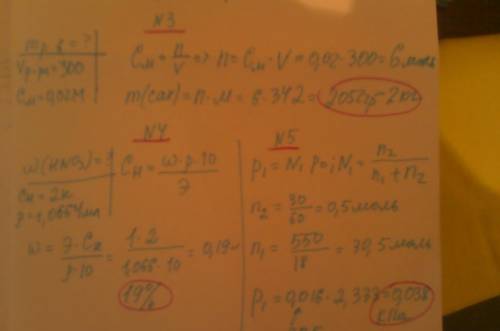 N3
m р.в = ?
Vр-ра = 300
Cм = 0,02M
Cм = n/V => n = Cм · V = 0,02 · 300 = 6 моль
m(сах) = n · M = 6 · 342 = 2052гр ~ 2кг
N4
ω(HNO3) = ?
Cн = 2н
ρ = 1,065г/мл
Cн = ω · ρ · 10 / Э
ω = Э · Cн / ρ · 10 = 1 · 2 / 1,065 · 10 = 0,19
19%
N5
P1 = N1 P0; N1 = n2 / n1 + n2
n2 = 30/60 = 0,5 моль
n1 = 550/18 = 30,5 моль
P1 = 0,016 · 2,333 = 0,038 кПа